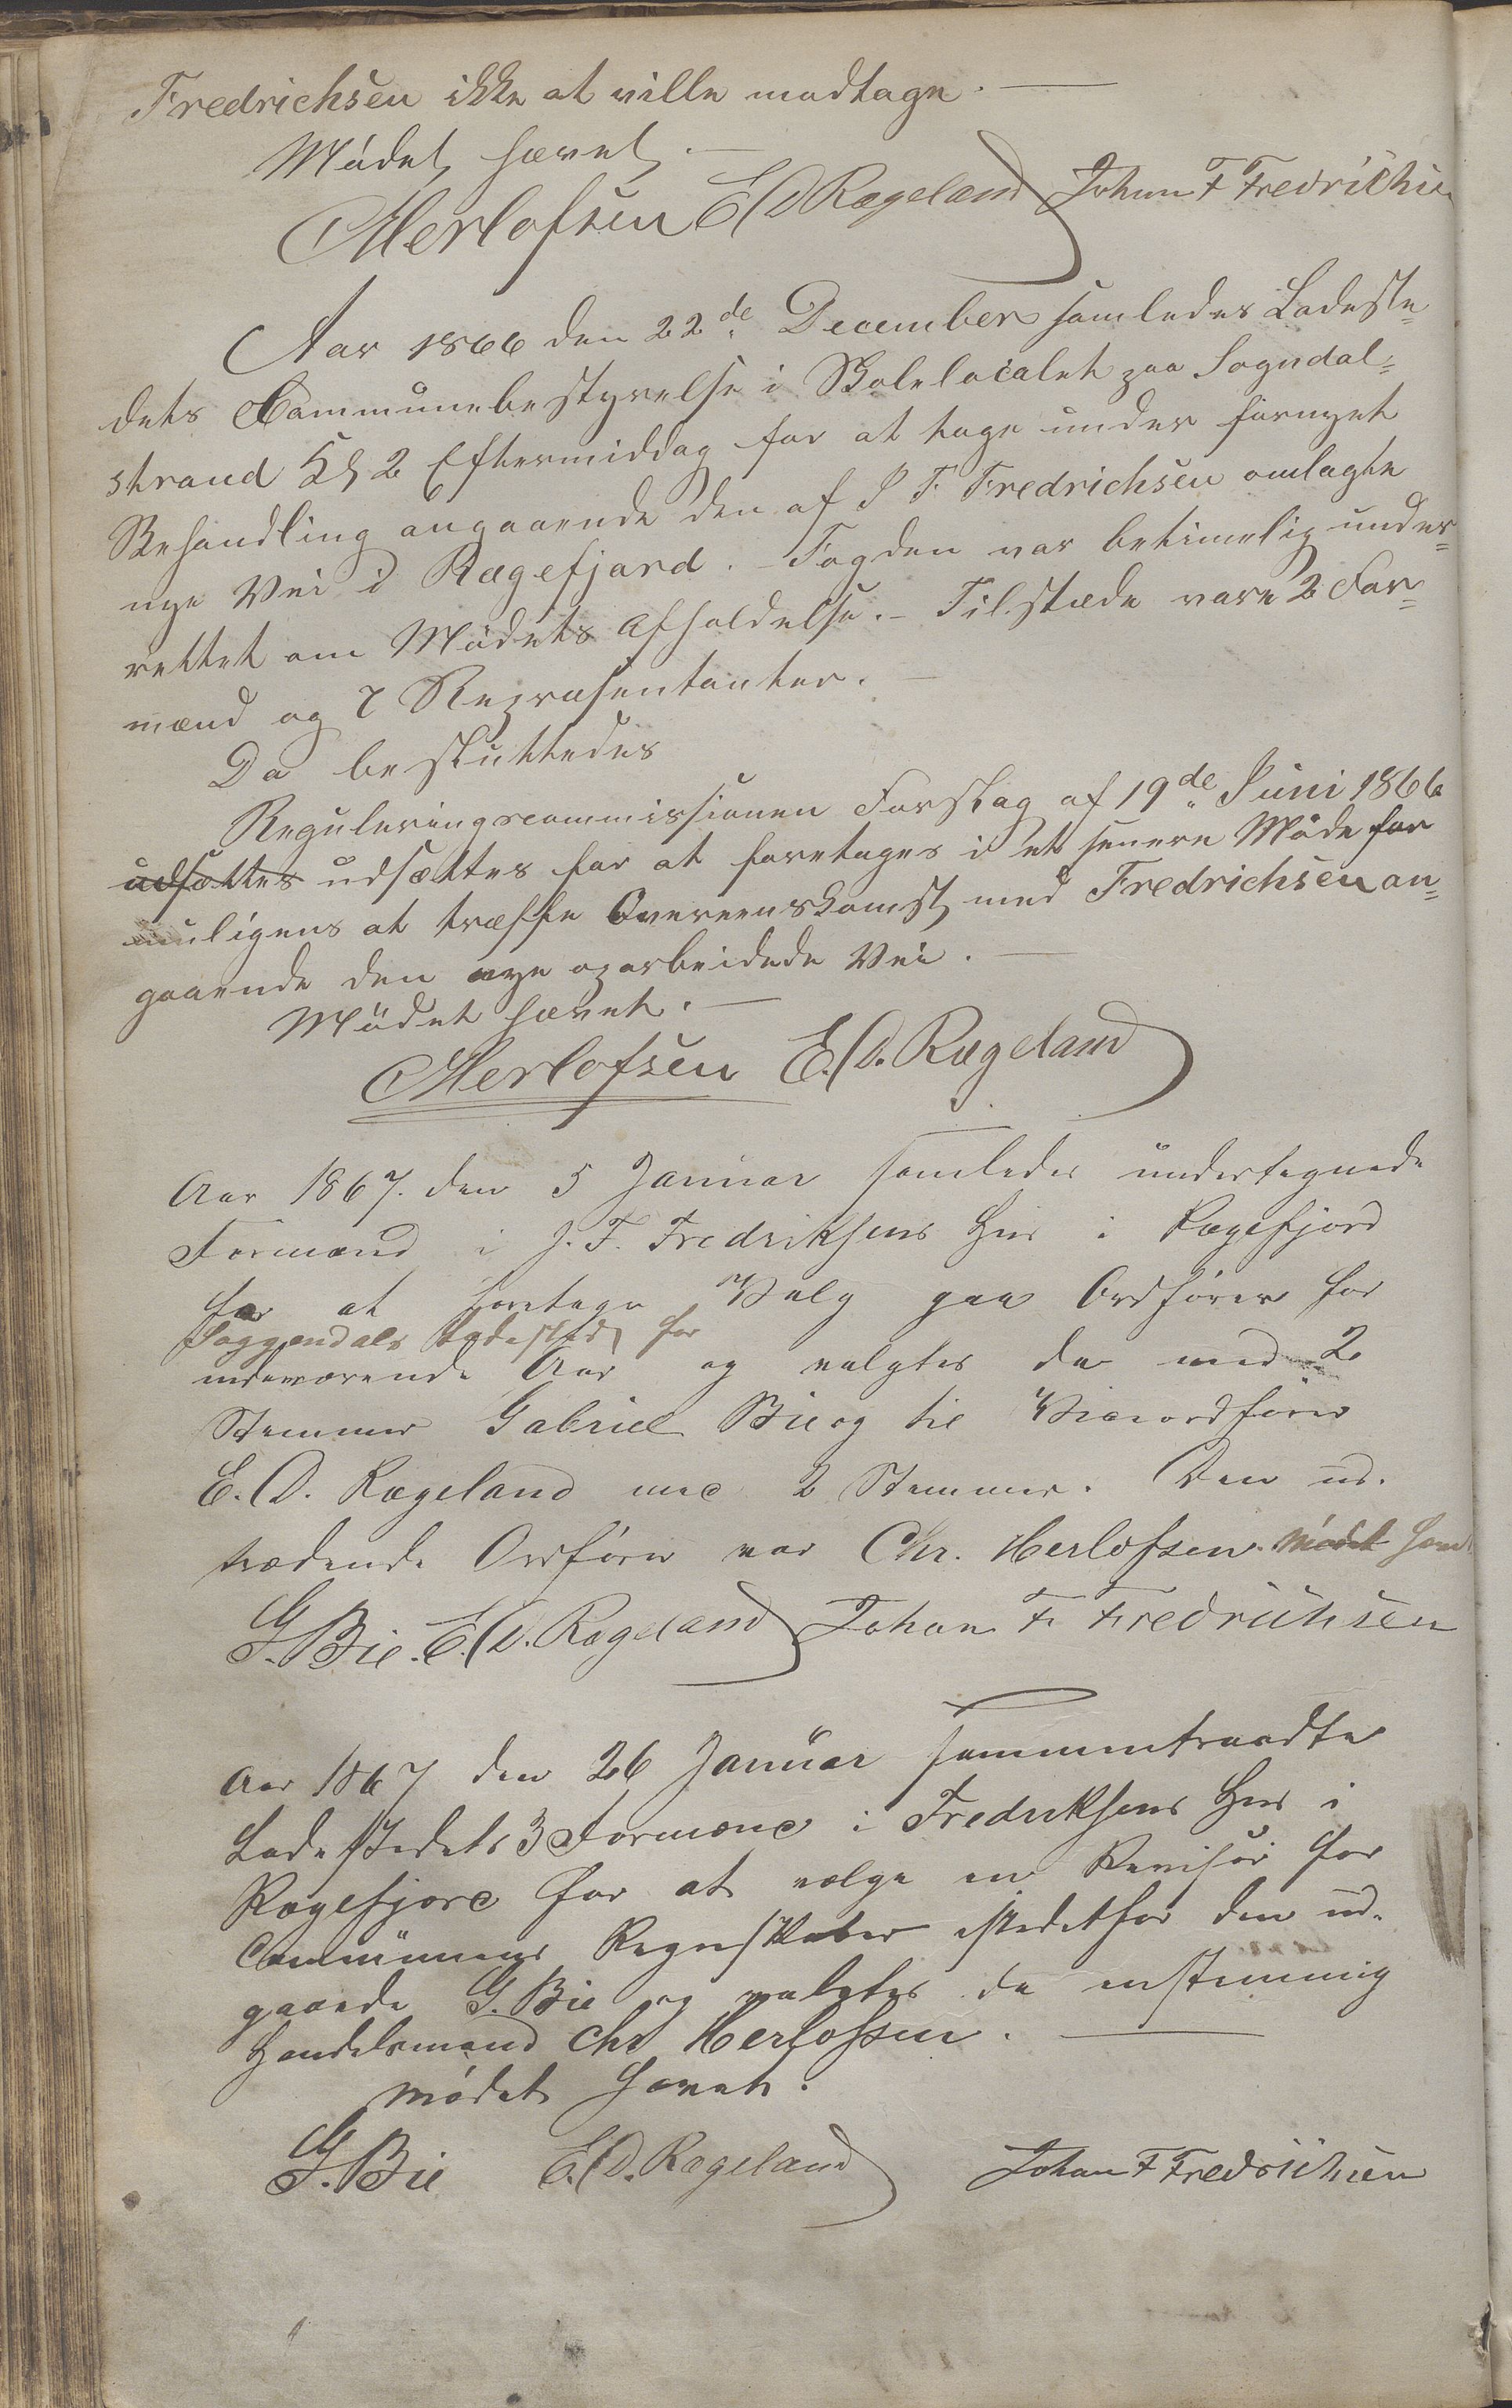 Fredrichsen ikke at ville modtage. —
Mödet hævet. —
CHerlofsen E. D. Rægeland Johan F Fredrichsen
Aar 1866 den 22de December samledes Ladeste=
dets Communebestyrelse i Skolelocalet paa Sogndal=
strand Kl 2 Eftermiddag for at tage under fornyet
Behandling angaaende den af J F. Fredrichsen omlagte
nye Vei i Rægefjord. – Fogden var betimelig under=
rettet om Mödets Afholdelse. – Tilstæde vare 2 For=
mænd og 7 Repræsentanter. –
Da besluttedes
Reguleringscommissionen Forslag af 19de Juni 1866
udsættes udsættes for at foretages i et senere Möde for
muligens at træffe Overeenskomst med Fredrichsen an=
gaaende den nye oparbeidede Vei. —
Mödet hævet. —
CHerlofsen E. D. Rægeland
Aar 1867. den 5 Januar samledes undertegnede
Formænd i J. F. Fredriksens Hus i Rægefjord
for at foretage Valg paa Ordfører for
Soggendals Ladested for
indeværende Aar og valgtes da med 2
Stemmer Gabriel Bie og til Viceordfører
E. D. Rægeland med 2 Stemmer. Den ud-
trædende Ordfører var Chr. Herlofsen. Mödet hævet
G. Bie. E. D. Rægeland Johan F. Fredrichsen
Aar 1867 den 26 Januar sammentraadte
Ladestedets 3 Formænd i Fredriksens Hus i
Rægefjord for at vælge en Revisor for
Communens Regnskaber istedetfor den ud-
gaaede G. Bie og valgtes da enstemmig
Handelsmand Chr Herlofsen. —
Mødet hævet.
G. Bie E. D. Rægeland Johan F Fredrichsen